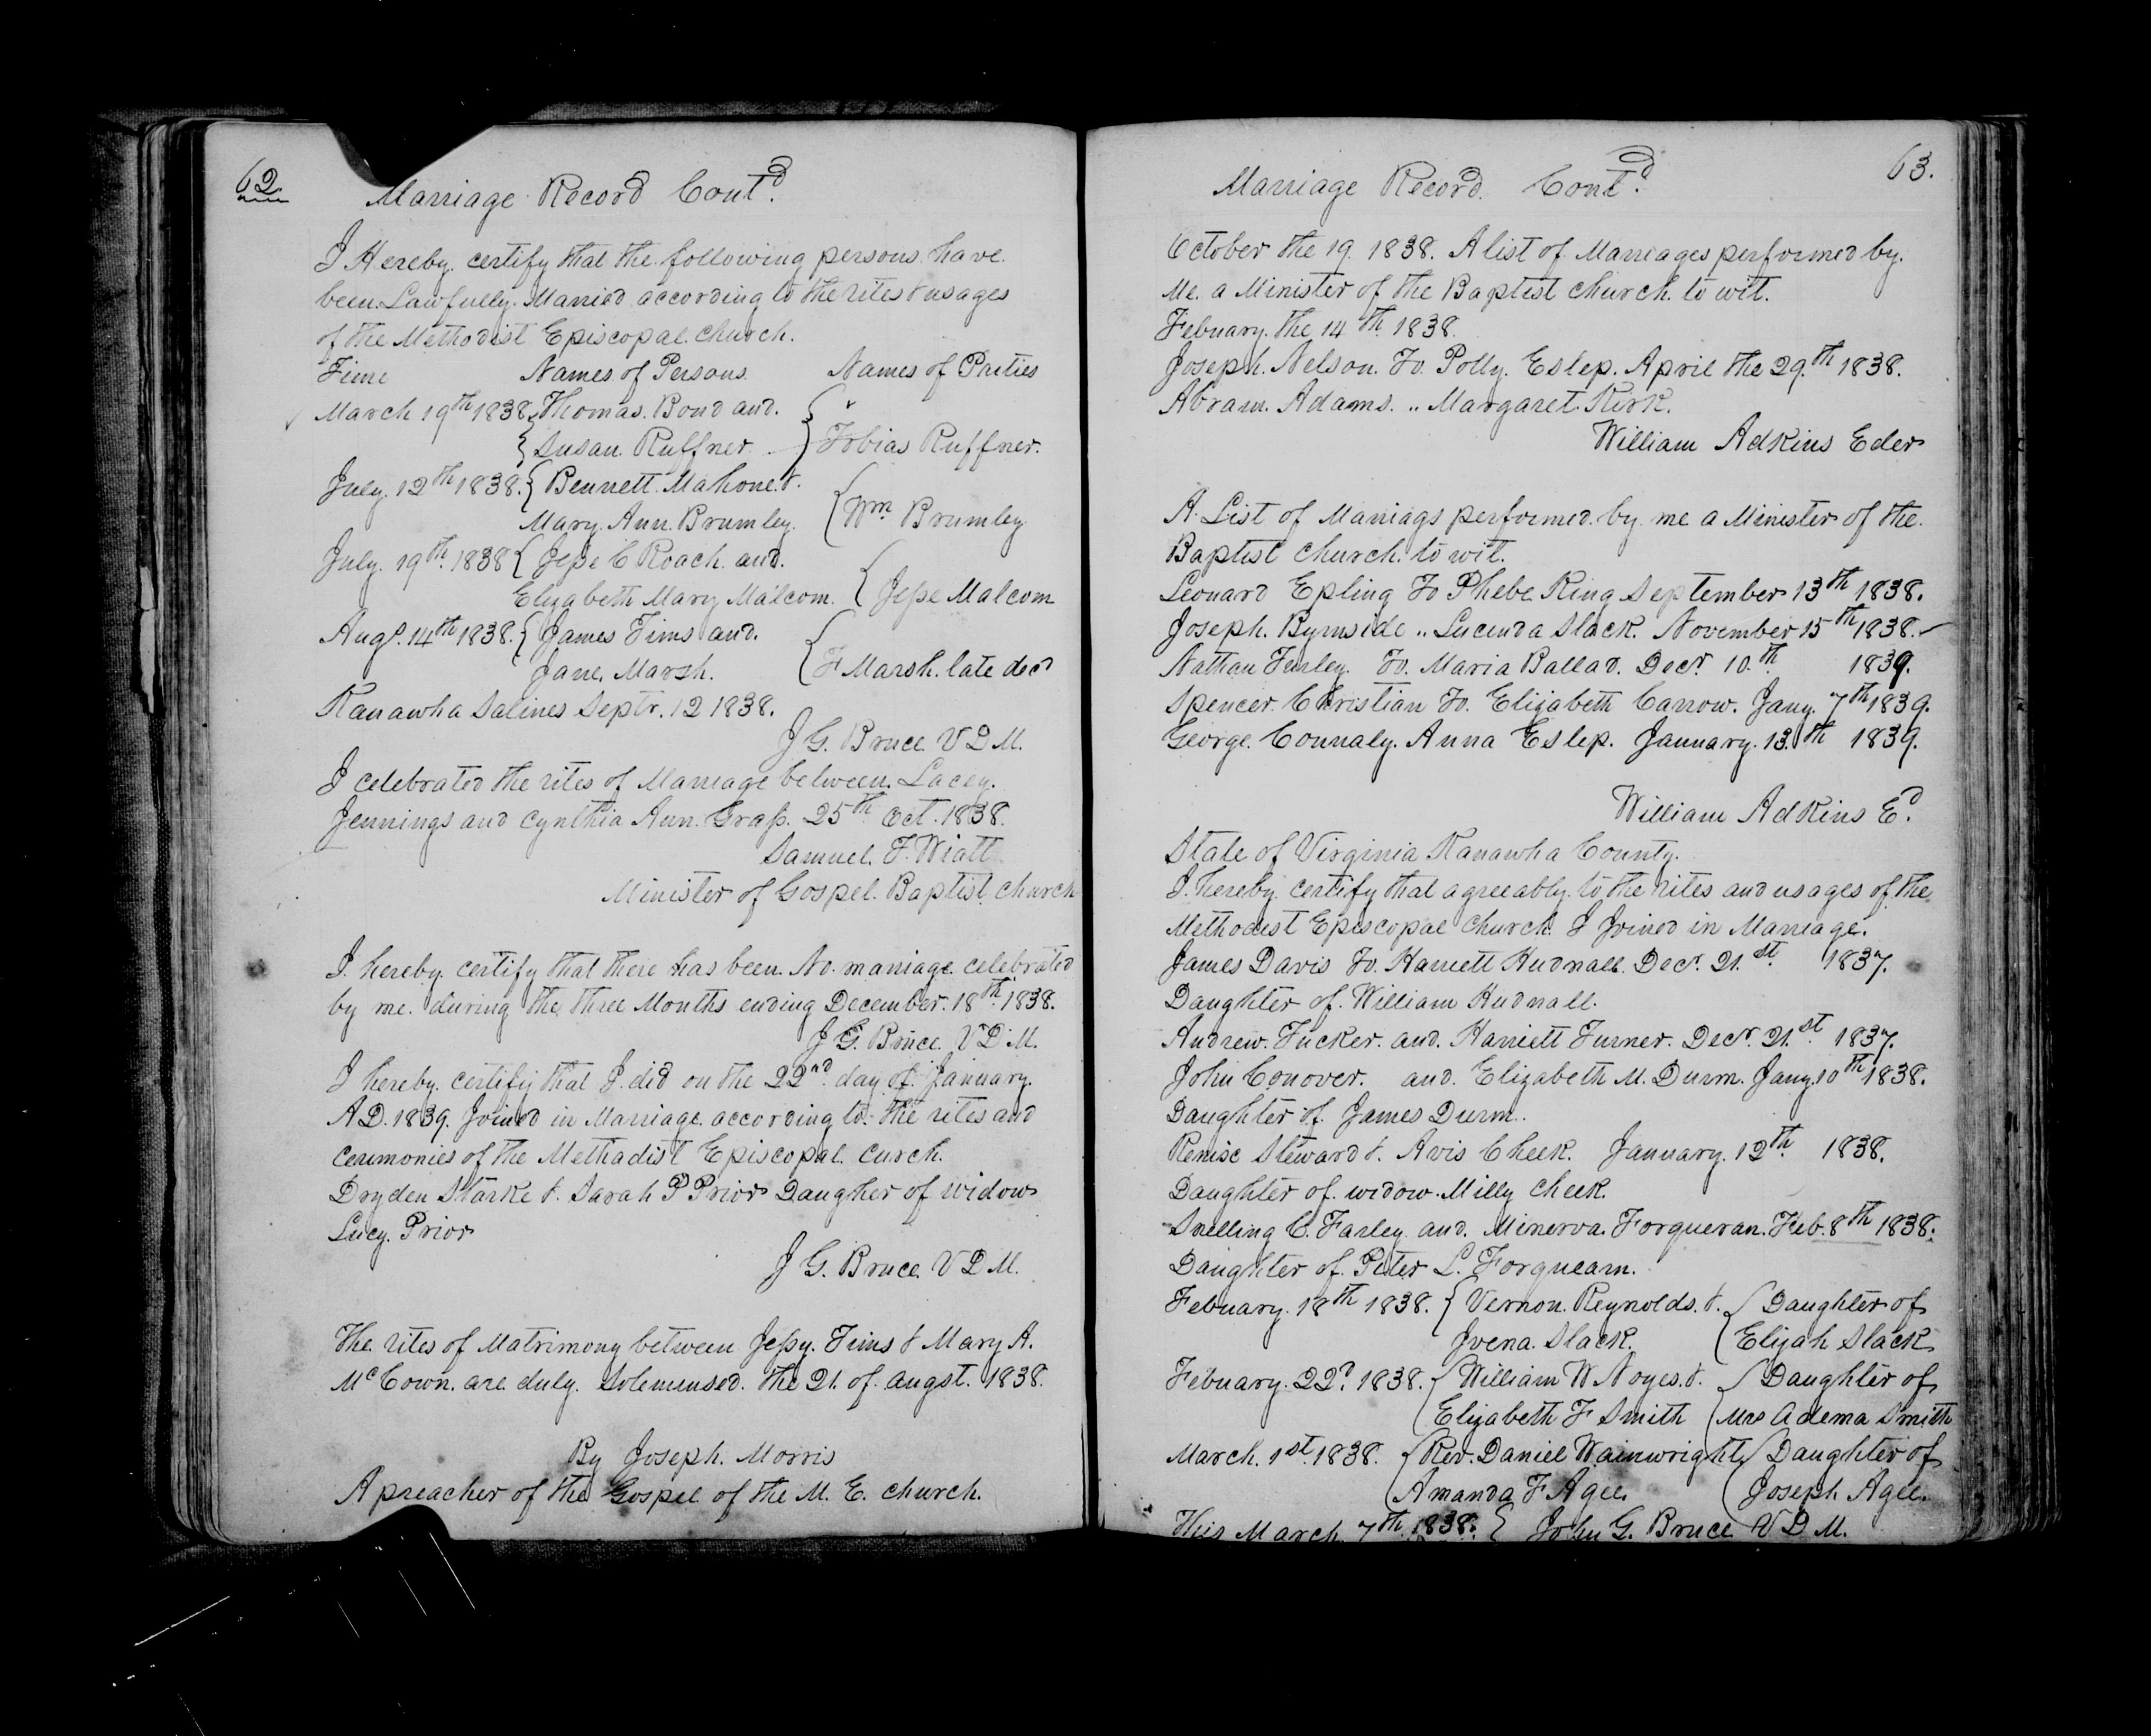 62
Marriage Record Cont.d
I Hereby. certify that the following persons have.
been. Lawfully. Married according to the rites & usages
of the Methodist Episcopal. church.
Time Names of Persons. Names of Parties
March 19th 1838 { Thomas. Bond and. { "
{ Susan Ruffner. } Tobias Ruffner.
July. 12th 1838. { Bennett. Mahone. &.
Mary. Ann. Brumley. { Wm Brumley
July. 19th. 1838 { Jesse C Roach. and.
Elizabeth Mary Malcom. { Jesse Malcom
Augs. 14th 1838. { James Tims and.
Jane, Marsh. { F Marsh. late decd
Kanawha Salines Septr. 12 1838.
J G. Bruce V D M.
I celebrated the rites of Marriage between. Lacey.
Jennings and Cynthia Ann. Grass. 25th Oct. 1838.
Samuel. T. Wiatt
Minister of Gospel. Baptist church
I. hereby. certify that there has been. No. marriage celebrated
by me. during the three Months ending December. 18th 1838.
J G. Bruce. V D M.
I hereby. certify that I. did on the 22nd. day of. January.
A D. 1839. Joined in Marriage. according to. the rites and
ceremonies of the Methadist Episcopal. curch.
Dryden Starke &. Sarah P Prior Daugher of widow
Lucy. Prior
J G. Bruce. V D M.
The. rites of Matrimony between Jessy. Tims & Mary A.
McCown. are duly. Solemensed. the 21. of. augst. 1838.
By Joseph. Morris
A preacher of the Gospel of the M. E. church.
63.
Marriage Record. Cont.d
October the 19. 1838. A list of Marriages performed by.
Me. a Minister of the Baptist church. to wit.
Febuary. the 14th. 1838.
Joseph. Nelson. To. Polly. Eslep. April the 29.th 1838.
Abram. Adams. „ Margaret. Kirk.
William Adkins Eder
A. List of Marriags performed. by me a Minister of the.
Baptist church. to wit.
Leonard Epling To Phebe King September 13th 1838.
Joseph. Byrnside „ Lucinda Slack. November 15th 1838.
Nathan Turley. To. Maria Ballad. Decr. 10.th 1839.
Spencer. Christian To. Elizabeth Carrow. Jany. 7th 1839.
George. Connaly. Anna Eslep. January. 13.th 1839.
William Adkins E.d
State of Virginia Kanawha County.
I. hereby. certify that agreeably. to the rites and usages of the.
Methodist Episcopal church. I Joined in Marriage.
James Davis To. Harriett Hudnall. Decr. 21.st. 1837.
Daughter of. William Hudnall.
Andrew. Tucker. and. Harriett Turner. Decr. 21.st 1837.
John Conover. and. Elizabeth M. Durm. Jany. 10th 1838.
Daughter of. James Durm.
Renise Steward &. Avis Cheek. January. 12th. 1838.
Daughter of. widow. Milly cheek.
Snelling C. Farley and. Minerva. Forqueran. Feb. 8th 1838.
Daughter of. Peter L. Forquearn.
Febuary. 18th 1838. { Vernon. Reynolds. &. { Daughter of
Jvena. Slack. { Elijah Slack
Febuary. 22d. 1838. { William W Noyes. &. { Daughter of
{ Elizabeth F Smith { Mrs Adema Smith
March. 1st. 1838. { Rev. Daniel Wainwright { Daughter of
{ Amanda F Agee. { Joseph Agee.
This March. 7th. 1838. { John G. Bruce V D M.